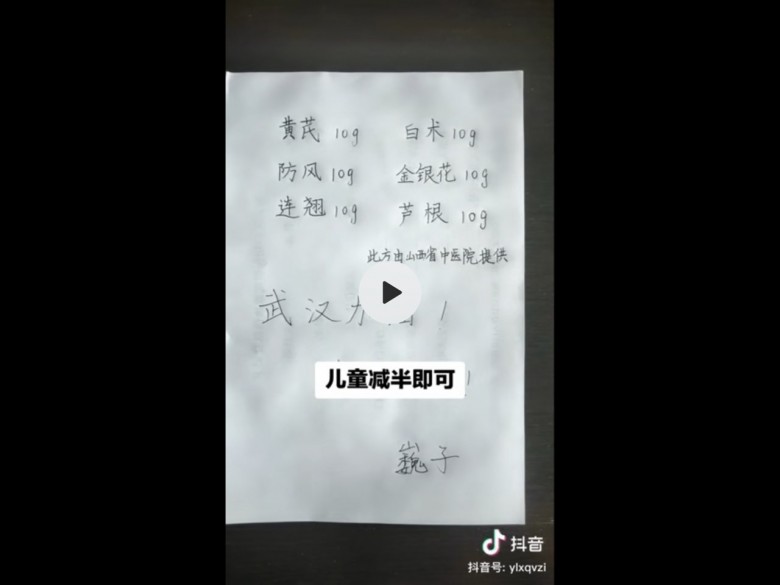 黄芪 10g 白术 10g
防风 10g 金银花 10g
连翘 10g 芦根 10g
此方由山西省中医院提供
武汉
儿童减半即可
巍子
抖音
抖音号: ylxqvzi